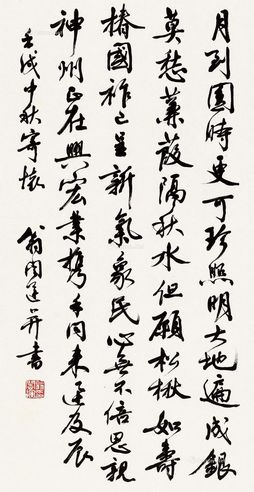 月到圓時更可珍照明大地遍成銀
莫愁蒹葭隔秋水但願松楸如壽
椿國祚已呈新氣象民心無不倍思親
神州正在興宏業携手同來建及辰
壬戌中秋寄懷 翁闓運并書